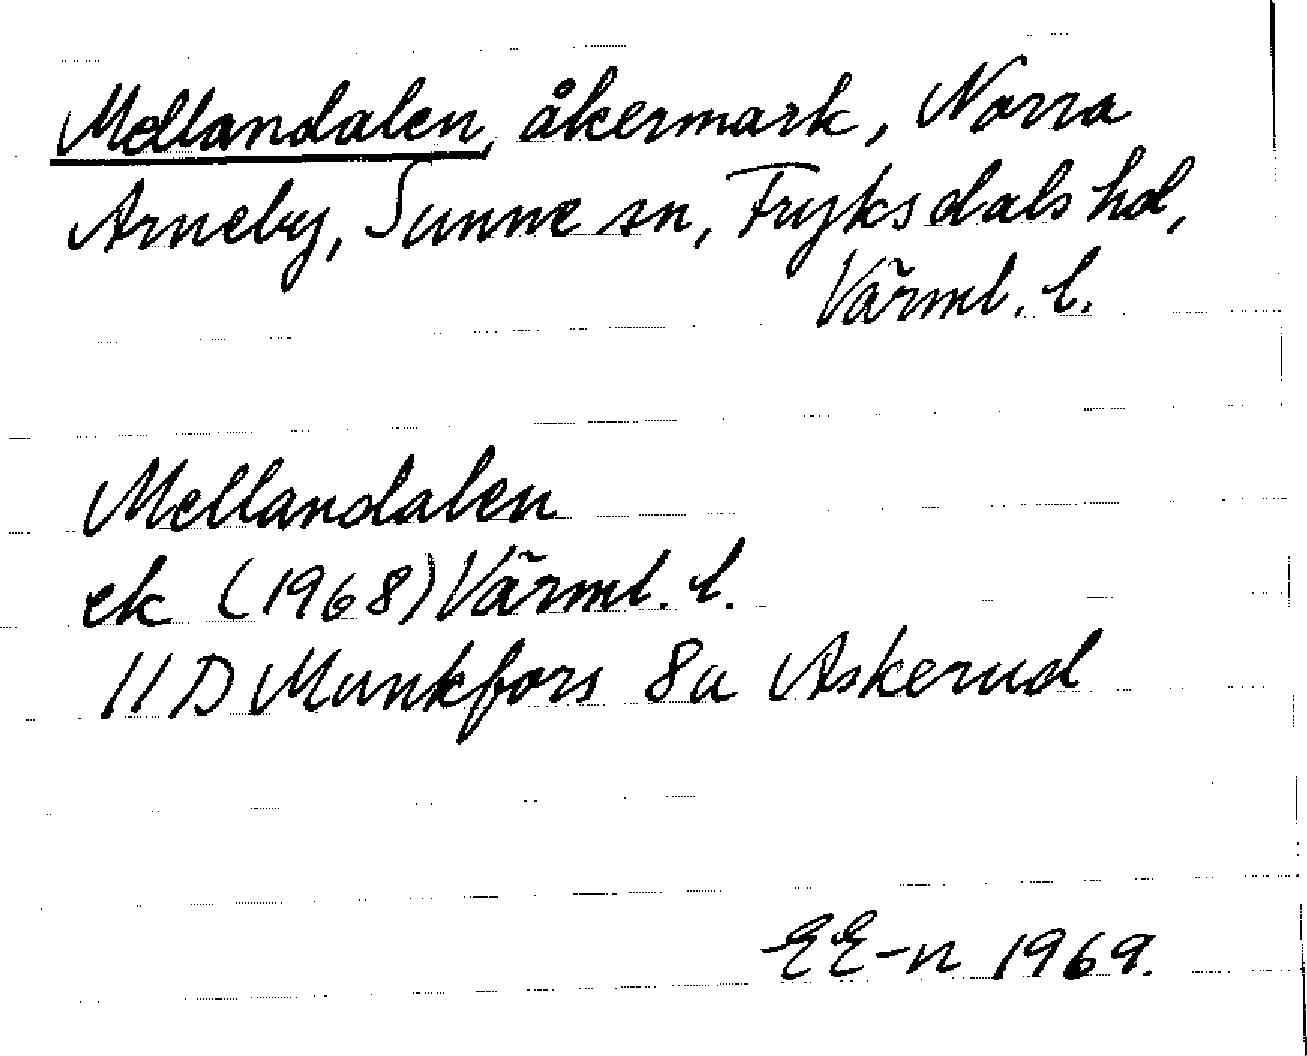 Mellandalen, åkermark, Norra
Arneby, Sunne sn, Fryksdals hd,
Värml. l.
Mellandalen
ek (1968) Värml. l.
11 D Munkfors 8a Askerud
EE-n 1969.